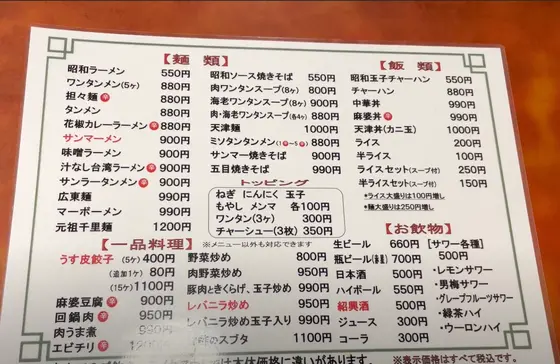 【麺類】
昭和ラーメン 550円
ワンタンメン(5ヶ) 880円
担々麺 辛 880円
タンメン 880円
花椒カレーラーメン 辛 880円
サンマーメン 900円
味噌ラーメン 900円
汁なし台湾ラーメン 辛 900円
サンラータンメン 辛 900円
広東麺 990円
マーボーメン 990円
元祖千里麺 1200円
昭和ソース焼きそば 550円
肉ワンタンスープ(8ヶ) 800円
海老ワンタンスープ(8ヶ) 900円
肉・海老ワンタンスープ(各4ヶ) 880円
天津麺 1000円
ミソタンタンメン(1辛〜5辛) 880円
サンマー焼きそば 900円
五目焼きそば 990円
トッピング
ねぎ にんにく 玉子
もやし メンマ 各100円
ワンタン(3ヶ) 300円
チャーシュー(3枚) 350円
【飯類】
昭和玉子チャーハン 550円
チャーハン 880円
中華丼 990円
麻婆丼 辛 990円
天津丼(カニ玉) 1000円
ライス 200円
半ライス 100円
ライスセット(スープ付) 250円
半ライスセット(スープ付) 150円
*ライス大盛りは100円増し
*麺大盛りは250円増し
【一品料理】 ※メニュー以外も対応できます
うす皮餃子 (5ヶ) 400円
(追加1ヶ) 80円
(15ヶ) 1100円
麻婆豆腐 辛 900円
回鍋肉 辛 950円
肉うま煮 990円
エビチリ 辛
野菜炒め 800円
肉野菜炒め 950円
豚肉ときくらげ、玉子炒め 990円
レバニラ炒め 950円
レバニラ炒め玉子入り 990円
スブタ
【お飲物】
生ビール 660円
瓶ビール(中瓶) 700円
日本酒 500円
ハイボール 550円
紹興酒 500円
ジュース 300円
コーラ 300円
[サワー各種]
500円
・レモンサワー
・男梅サワー
・グレープフルーツサワー
・緑茶ハイ
・ウーロンハイ
本体価格に違いがあります。
※表示価格はすべて税込です。